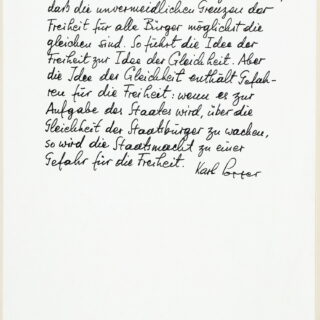 daß die unvermeidlichen Grenzen der
Freiheit für alle Bürger möglichst die
gleichen sind. So führt die Idee der
Freiheit zur Idee der Gleichheit. Aber
die Idee der Gleichheit enthält Gefah-
ren für die Freiheit: wenn es zur
Aufgabe des Staates wird, über die
Gleichheit der Staatsbürger zu wachen,
so wird die Staatsmacht zu einer
Gefahr für die Freiheit.
Karl Popper